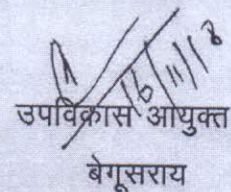 16/11/18
उपविकास आयुक्त
बेगूसराय